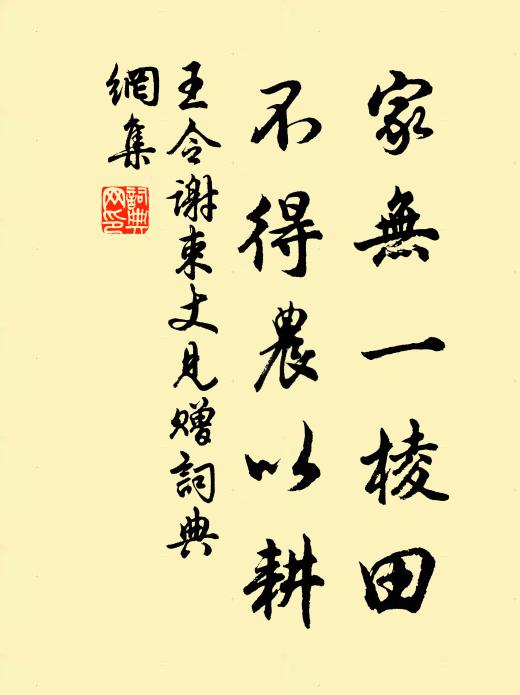 家無一棱田
不得農以耕
王令謝束丈見贈詞典
網集
詞典
网印